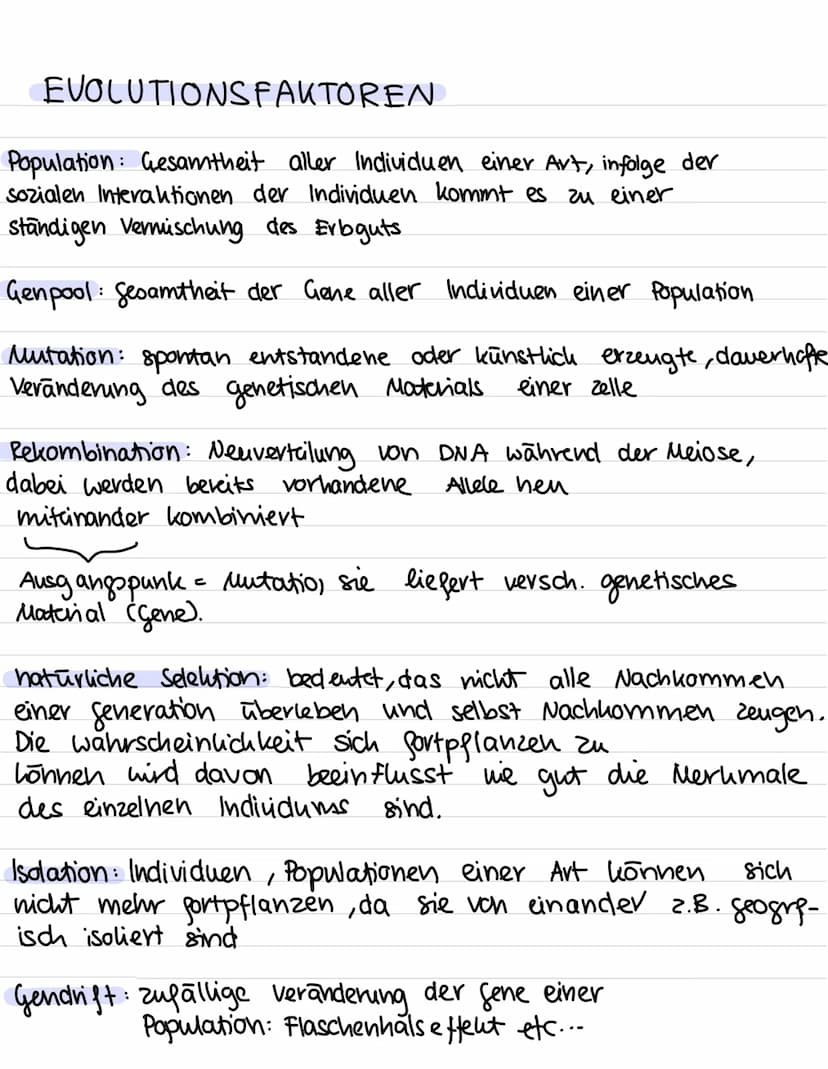 EVOLUTIONSFAKTOREN
Population: Gesamtheit aller Individuen einer Art, infolge der
sozialen Interaktionen der Individuen kommt es zu einer
ständigen Vermischung des Erbguts
Genpool: Gesamtheit der Gene aller Individuen einer Population
Mutation: spontan entstandene oder künstlich erzeugte, dauerhafte
Veränderung des genetischen Materials einer Zelle
Rekombination: Neuverteilung von DNA während der Meiose,
dabei werden bereits vorhandene Allele neu
miteinander kombiniert
Ausgangspunk = Mutatio, sie liefert versch. genetisches
Material (Gene).
natürliche Selektion: bedeutet, das nicht alle Nachkommen
einer Generation überleben und selbst Nachkommen zeugen.
Die wahrscheinlichkeit sich fortpflanzen zu
können wird davon beeinflusst wie gut die Merkmale
des einzelnen Individums sind.
Isolation: Individuen, Populationen einer Art können sich
nicht mehr fortpflanzen, da sie von einander z.B. geogrp-
isch isoliert sind
Gendrift: zufällige Veränderung der Gene einer
Population: Flaschenhalseffekt etc...